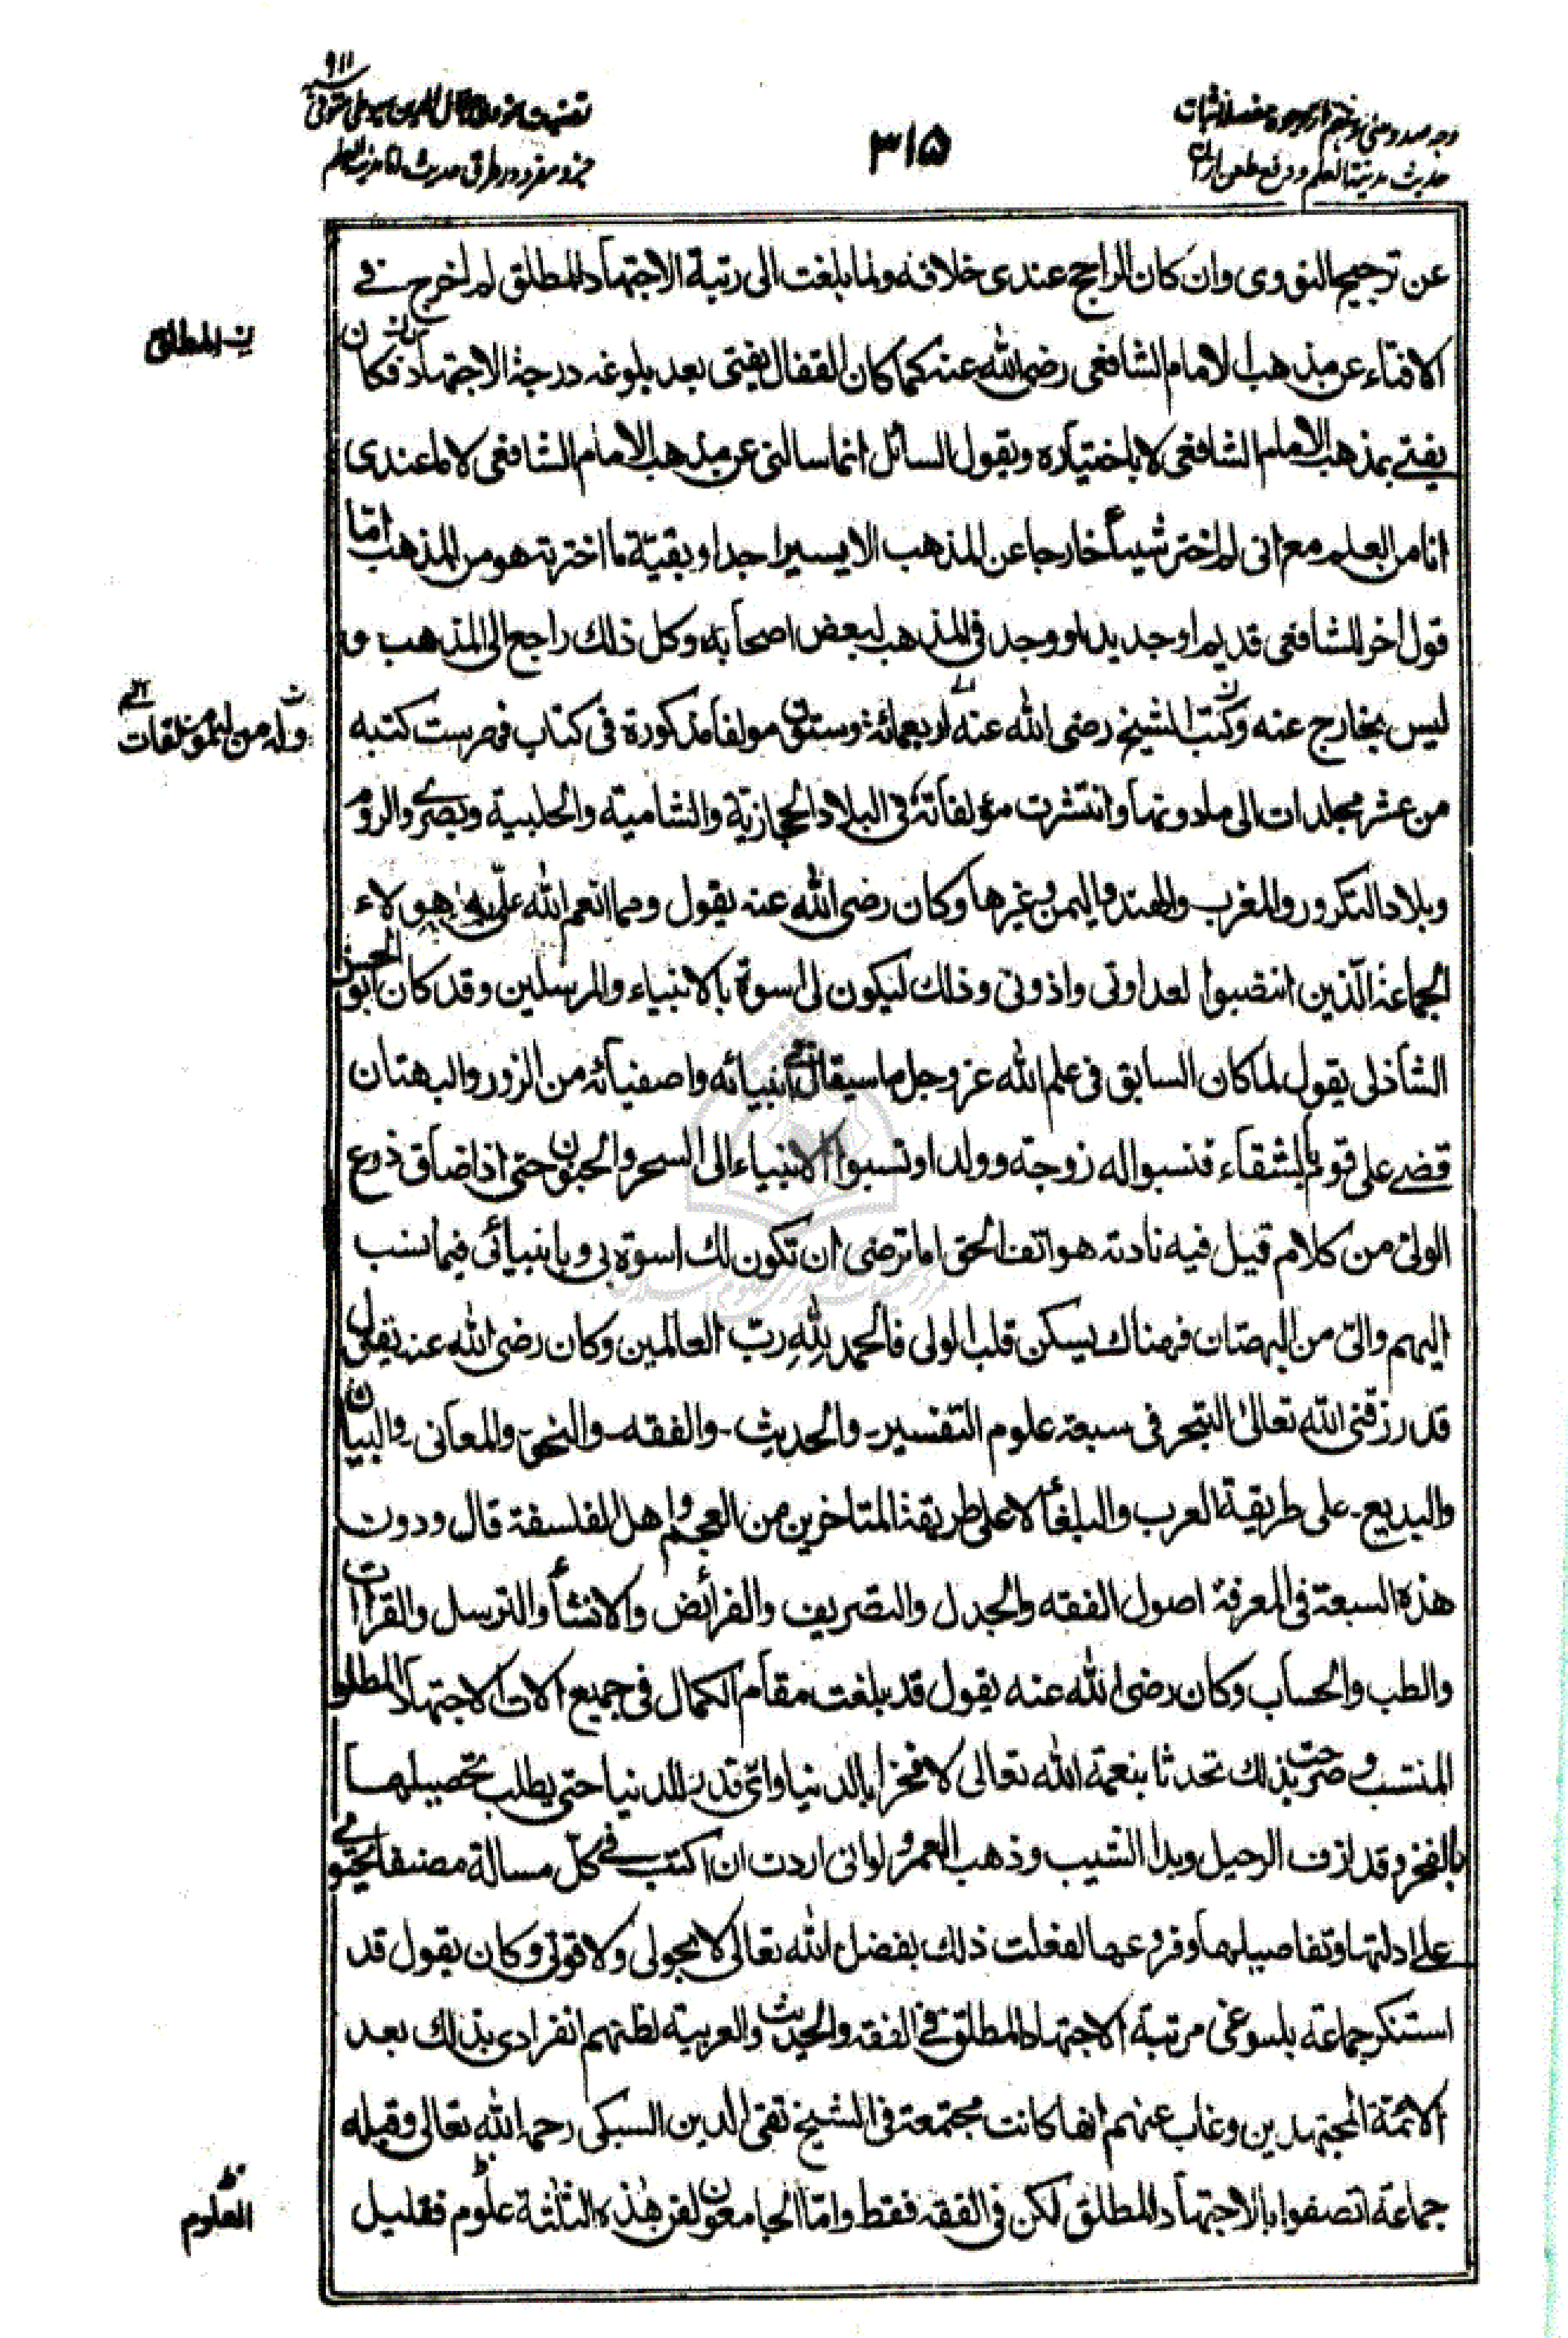 ۳۱۵
حدیث مدینة العلم و دفع طعن
۹۱۱
عن ترجيح النووى وان كان الراجح عندى خلافه ولما بلغت الى رتبة الاجتهاد المطلق لم اخرج فى
الافتاء عن مذهب الامام الشافعى رضى الله عنه كما كان القفال يفتى بعد بلوغه درجة الاجتهاد فكان
يفتى بمذهب الامام الشافعى لا باختياره ويقول السائل انما سالنى عن مذهب الامام الشافعى لا لما عندى
انا من العلم مع انى لم اختر شيئاً خارجا عن المذهب الا يسيرا جدا وبقية ما اخترته هو من المذهب اما
قول اخر للشافعى قديم او جديد او وجد فى المذهب لبعض اصحابه وكل ذلك راجع الى المذهب و
ليس بخارج عنه وكتب الشيخ رضى الله عنه اربعمائة وستون مولفا مذكورة فى كتاب فهرست كتبه
من عشر مجلدات الى ما دونها وانتشرت مؤلفاته فى البلاد الحجازية والشامية والحلبية وبصرى والروم
وبلاد التكرور والمغرب والهند واليمن وغيرها وكان رضى الله عنه يقول ومما انعم الله علّى به هولاء
الجماعة الّذين انتصبوا لعداوتى واذونى وذلك ليكون لى اسوة بالانبياء والمرسلين وقد كان ابو الحسن
الشاذلى يقول لما كان السابق فى علم الله عز وجل ما سيقال فى انبيائه واصفيائه من الزور والبهتان
قضى على قوم بالشقاء فنسبوا له زوجة وولدا ونسبوا الانبياء الى السحر والجنون حتى اذا ضاق ذرع
الولى من كلام قيل فيه نادته هواتف الحق اما ترضى ان تكون لك اسوة بى وبانبيائى فيما نسب
اليهم والىّ من البهتان فهناك يسكن قلب الولى فالحمد للهِ ربّ العالمين وكان رضى الله عنه يقول
قد رزقنى الله تعالى التبحر فى سبعة علوم التفسير۔ والحديث۔ والفقه۔ والنحو۔ والمعانى۔ والبيان
والبديع۔ على طريقة العرب والبلغاء لا على طريقة المتاخرين من العجم واهل الفلسفة قال ودون
هذه السبعة فى المعرفة اصول الفقه والجدل والتصريف والفرائض والانشاء والترسل والقراات
والطب والحساب وكان رضى الله عنه يقول قد بلغت مقام الكمال فى جميع الات الاجتهاد المطلق
المنتسب وصرحت بذلك تحدثا بنعمة الله تعالى لا فخرا بالدنيا واىّ قدر للدنيا حتى يطلب تحصيلها
بالفخر وقد ازف الرحيل وبدا الشيب وذهب العمر ولو انى اردت ان اكتب فى كلّ مسالة مصنفا يحتوى
على ادلتها وتفاصيلها وفروعها لفعلت ذلك بفضل الله تعالى لا بحولى ولا قوتى وكان يقول قد
استنكر جماعة بلوغى مرتبة الاجتهاد المطلق فى الفقه والحديث والعربية لظنهم انفرادى بذلك بعد
الائمة المجتهدين وغاب عنهم انها كانت مجتمعة فى الشيخ تقى الدين السبكى رحمه الله تعالى وقبله
جماعة اتصفوا بالاجتهاد المطلق لكن فى الفقه فقط وامّا الجامعون لفن هذه الثلثة علوم فقليل
المطلق
وله من المؤلفات
العلوم